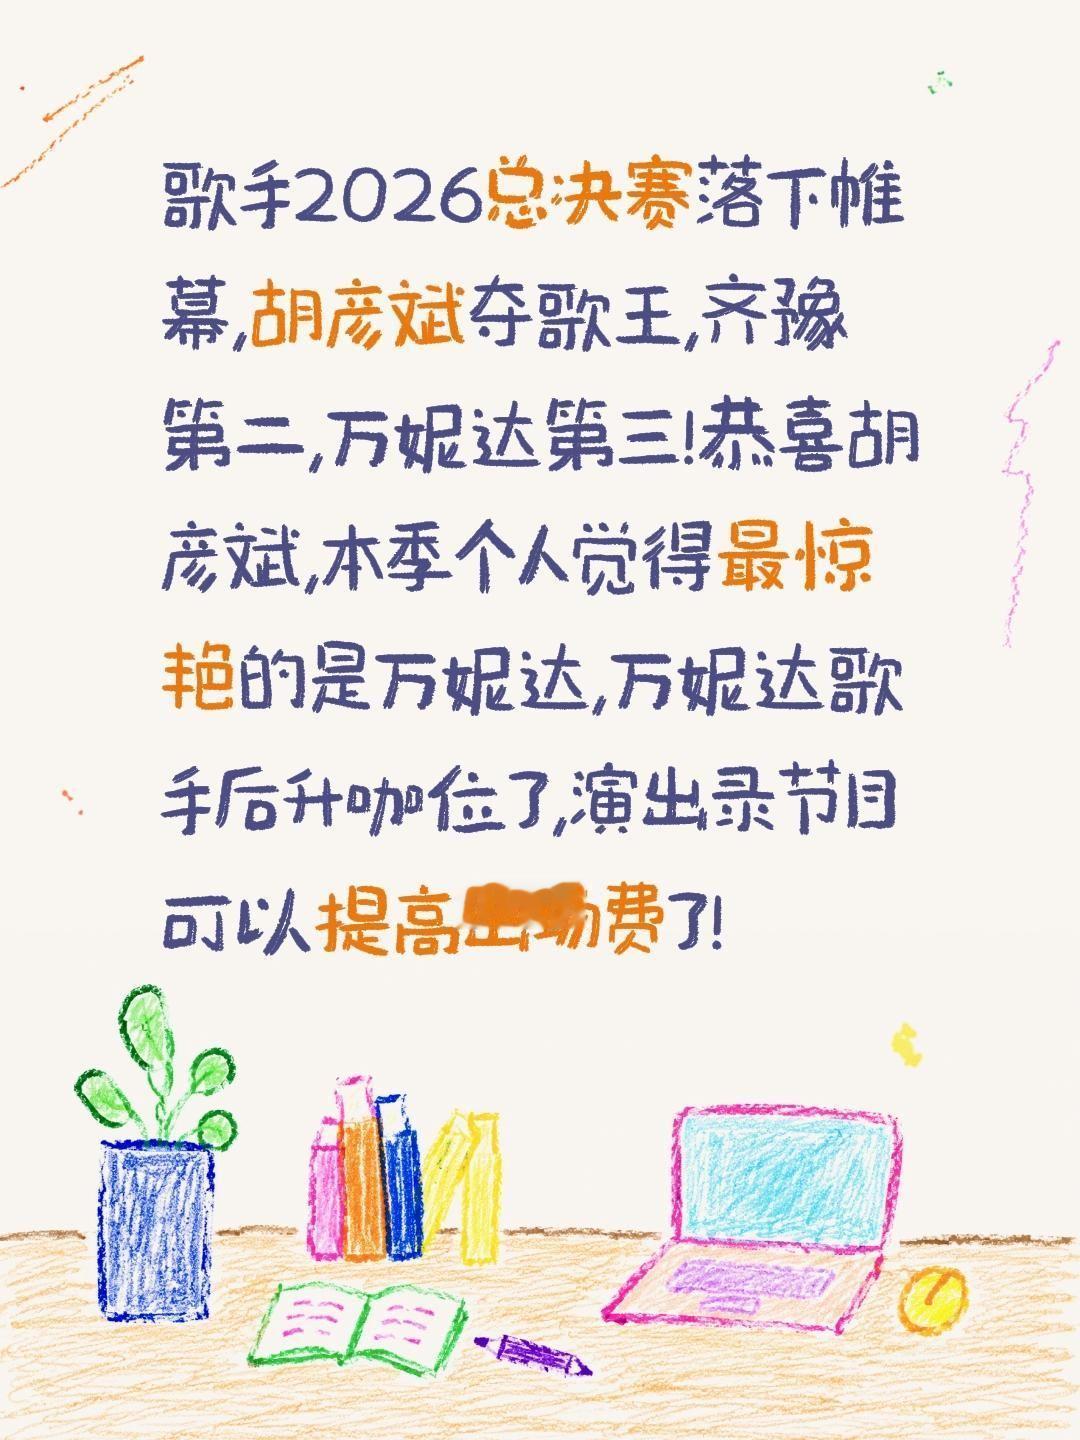 歌手2026总决赛落下帷
幕,胡彦斌夺歌王,齐豫
第二,万妮达第三!恭喜胡
彦斌,本季个人觉得最惊
艳的是万妮达,万妮达歌
手后升咖位了,演出录节目
可以提高费了!